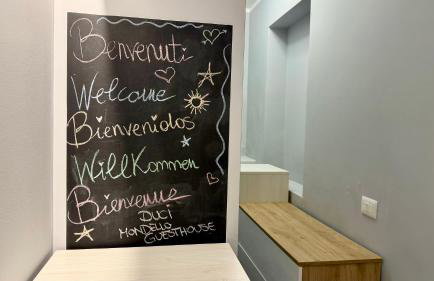 Benvenuti
Welcome
Bienvenidos
Willkommen
Bienvenue
DUCI
MONDELLO
GUESTHOUSE